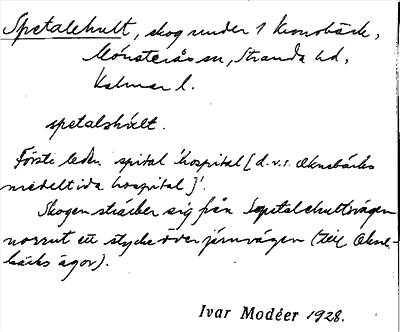 Spetalehult, skog under 1 Kronobäck,
Mönsterås sn, Stranda hd,
Kalmar l.
spetalshült.
Förste leden spital 'hospital [d.v.s. Oknebäcks
medeltida hospital]'.
Skogen sträcker sig från Spetalehultsvägen
norrut ett stycke över järnvägen (till Okne-
bäcks ägor).
Ivar Modéer 1928.